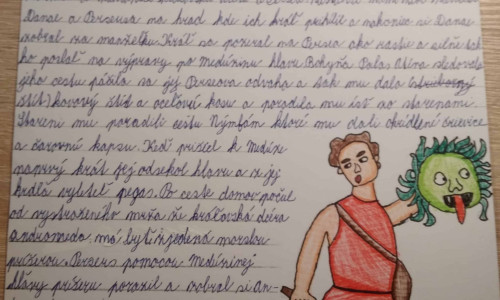 Danae a Perseusa na hrad kde ich kráľ prichýlil a nakoniec si Danae
zobral za manželku. Kráľ sa pozeral na Persea ako rastie a silnie tak
ho poslal na výpravu po medúzinu hlavu. Bohyňa Palas Aténa sledovala
jeho cestu páčila sa jej Perseova odvaha a tak mu dala
štít) kovový štít a oceľovú kosu a poradila mu ísť so starenami.
Stareni mu poradili cestu Nymfám ktoré mu dali okrídlené črievice
a čarovnú kapsu. Keď prišiel k Medúze
naprvý krát jej odsekol hlavu a z jej
krídla vyletel pegas. Po ceste domov počul
od vystrašeného muža že kráľovská dcéra
andromeda, má byť zjedená morskou
príšerou. Perseus pomocou Medúzinej
hlavy príšeru porazil a zobral si An-